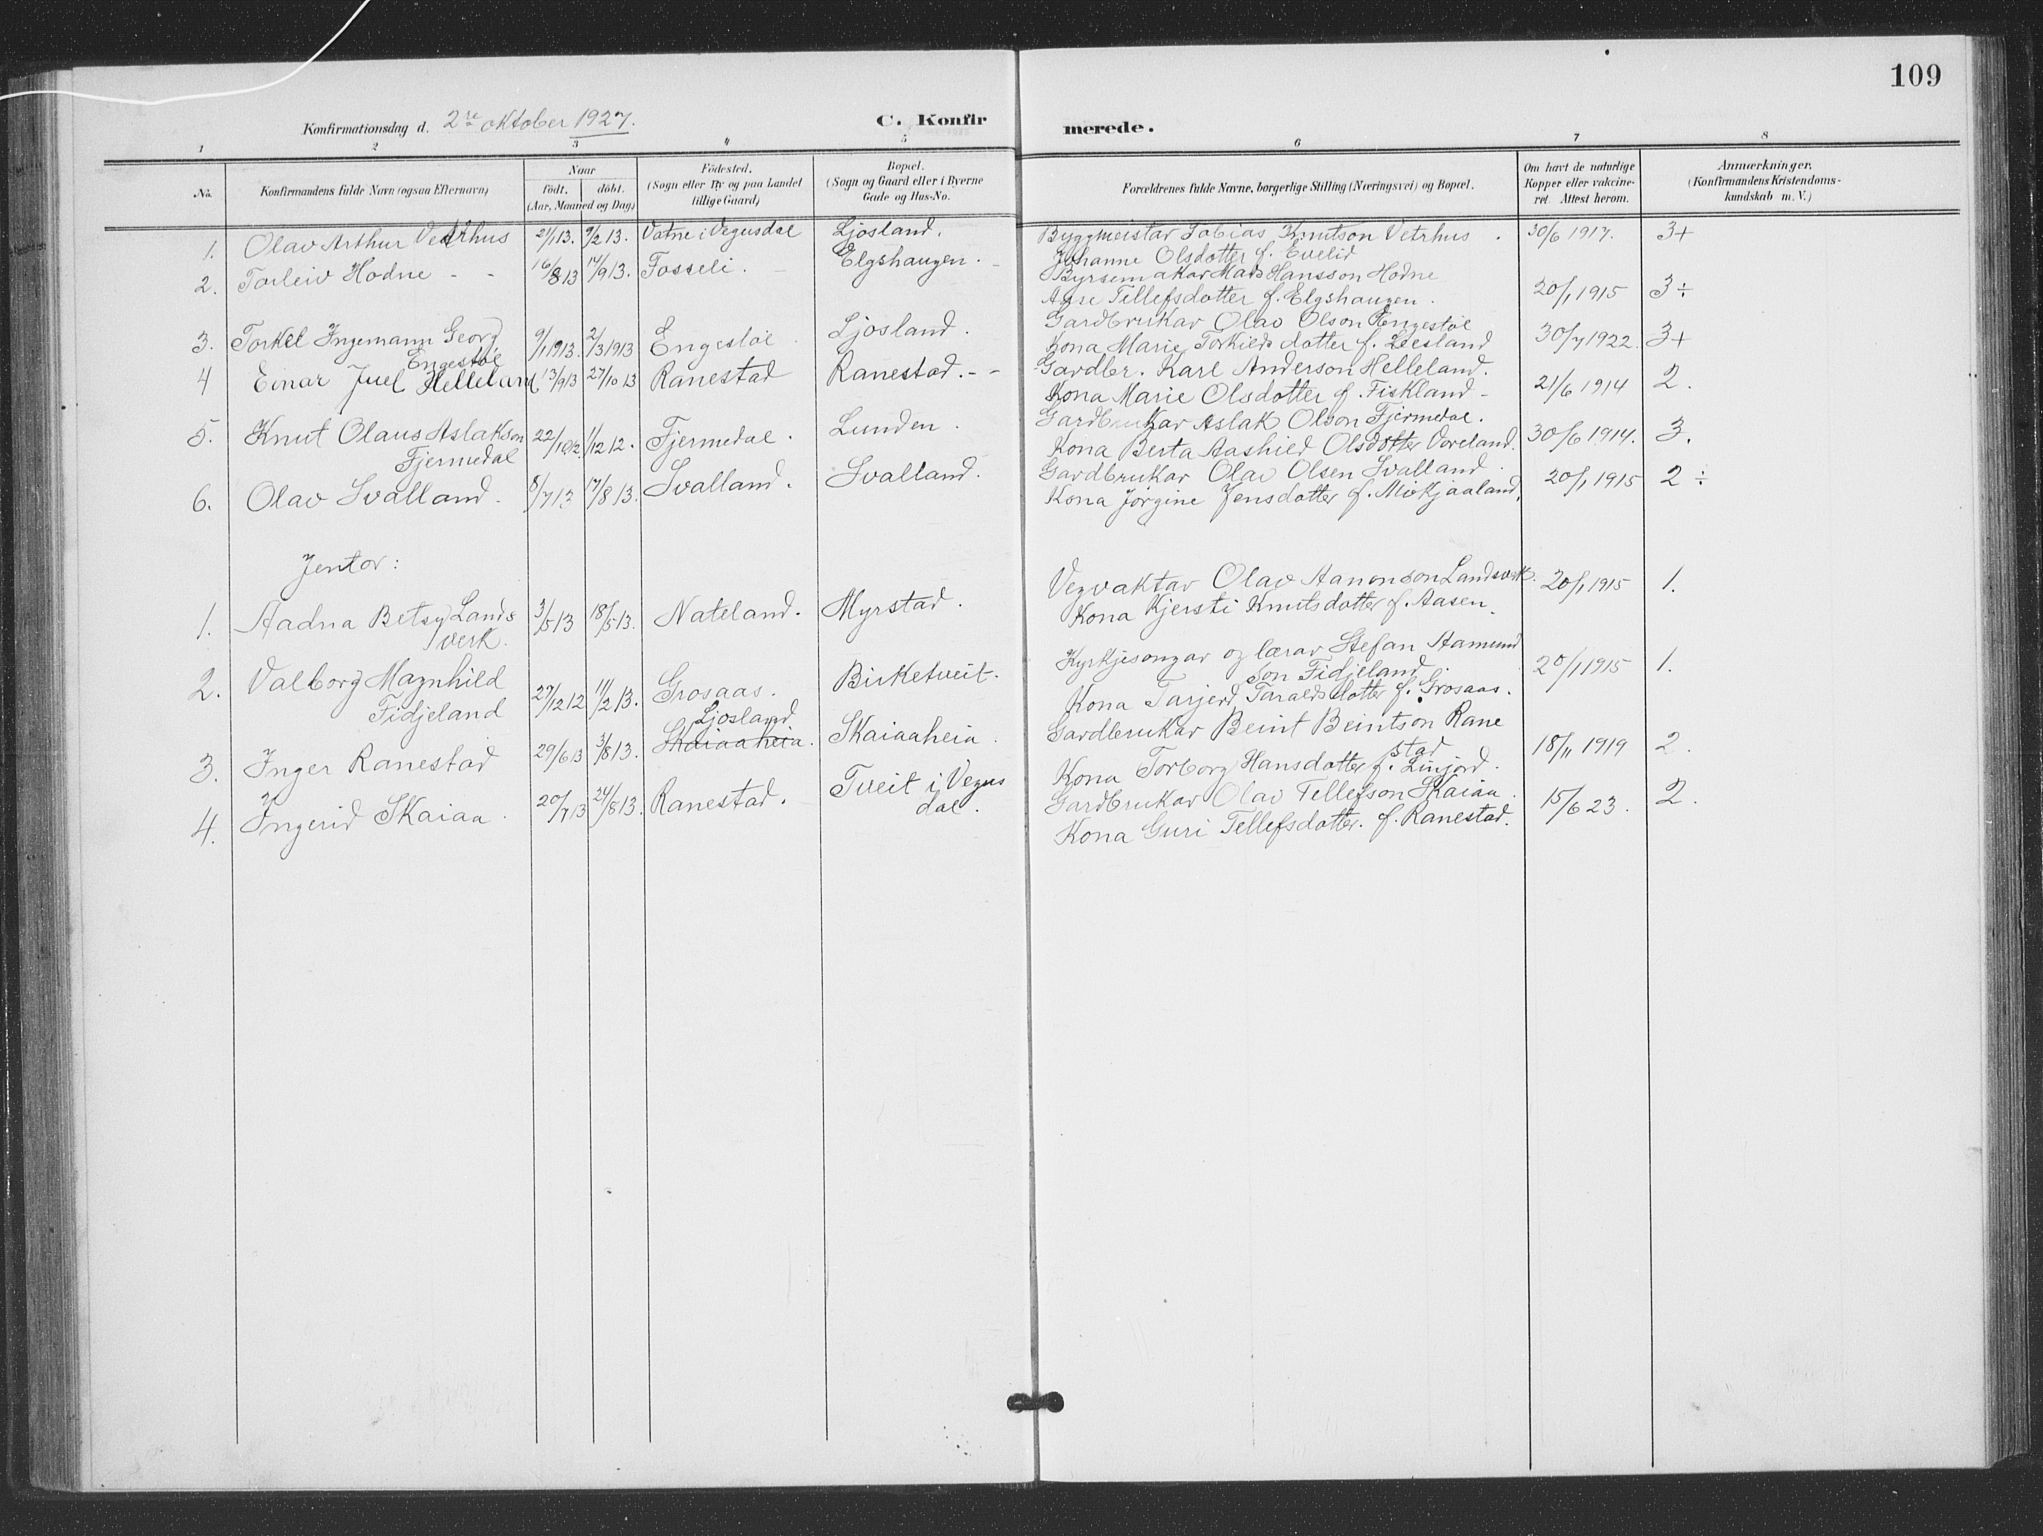 109
Konfirmationsdag d. 2re oktober 1927.
C. Konfir
merede.
1 2 3 4 5 6 7 8
No.
Konfirmandens fulde Navn (ogsaa Efternavn)
Naar
födt, döbt.
(Aar, Maaned og Dag)
Födested.
(Sogn eller By og paa Landet
tillige Gaard)
Bopæl.
(Sogn og Gaard eller i Byerne
Gade og Hus-No.
Forældrenes fulde Navne, borgerlige Stilling (Næringsvei) og Bopæl.
Om havt de naturlige
Kopper eller vakcine-
ret. Attest herom.
Anmærkninger.
(Konfirmandens Kristendoms-
kundskab m. V.)
1. Olav Arthur Vetrhus 21/1 13. 9/2 13. Vatne i Vegusdal Ljosland. Byggmeistar Tobias Knutson Vetrhus. 30/6 1917. 3+
Johanne Olsdotter f. Evelid
2. Torleiv Hodne - - 16/8 13 14/9 13. Fosseli. - Elgshaugen. - Byrsemakar Mads Hansson Hodne
Ane Tellefsdotter f. Elgshaugen. 20/1 1915 3÷
3. Torkel Ingemann Georg 9/1 1913. 2/3 1913 Engestøl Ljosland. Gardbrukar Olav Olson Engestøl
Engestøl
Kona Marie Torkildsdotter f. 30/7 1922. 3+
4 Einar Juel Helleland 13/9 13 27/10 13 Ranestad Ranestad. - - Gardbr. Karl Anderson Helleland.
Kona Marie Olsdotter f. Fiskland - 21/6 1914 2.
5. Knut Olaus Aslakson 22/10 12. 1/12 12. Fjermedal. Lunden. Gardbrukar Aslak Olson Fjermedal.
Fjermedal
Kona Berta Aashild Olsdotter Voreland. 30/6 1914. 3.
6. Olav Svalland. 8/7 13 17/8 13. Svalland. Svalland. Gardbrukar Olav Olsen Svalland.
Kona Jørgine Jensdotter f. Mivkjaaland. 20/1 1915 2÷
Jentor:
1. Aadna Betsy Lands 3/5 13 18/5 13. Nateland. Myrstad. Vegvaktar Olav Aanonson Landsverk. 20/1 1915 1.
verk.
Kona Kjersti Knutsdotter f. Aasen.
2. Valborg Magnhild 27/12 12 11/2 13. Grosaas. Birketveit. Kyrkjesongar og lærar Stefan Aamund
Fidjeland
son Fidjeland 20/1 1915 1.
Kona Tarjerd Taraldsdotter f. Grosaas.
3. Inger Ranestad 29/6 13 3/8 13. Ljosland Skaiaaheia. Skaiaaheia. Gardbrukar Beint Beintson Rane
stad 18/11 1919 2.
Kona Torborg Hansdotter f. Linjord.
4. Ingerid Skaiaa. 20/7 13 24/8 13. Ranestad. Tveit i Vegus
dal. Gardbrukar Olav Tellefson Skaiaa. 15/6 23. 2.
Kona Guri Tellefsdotter. f. Ranestad.